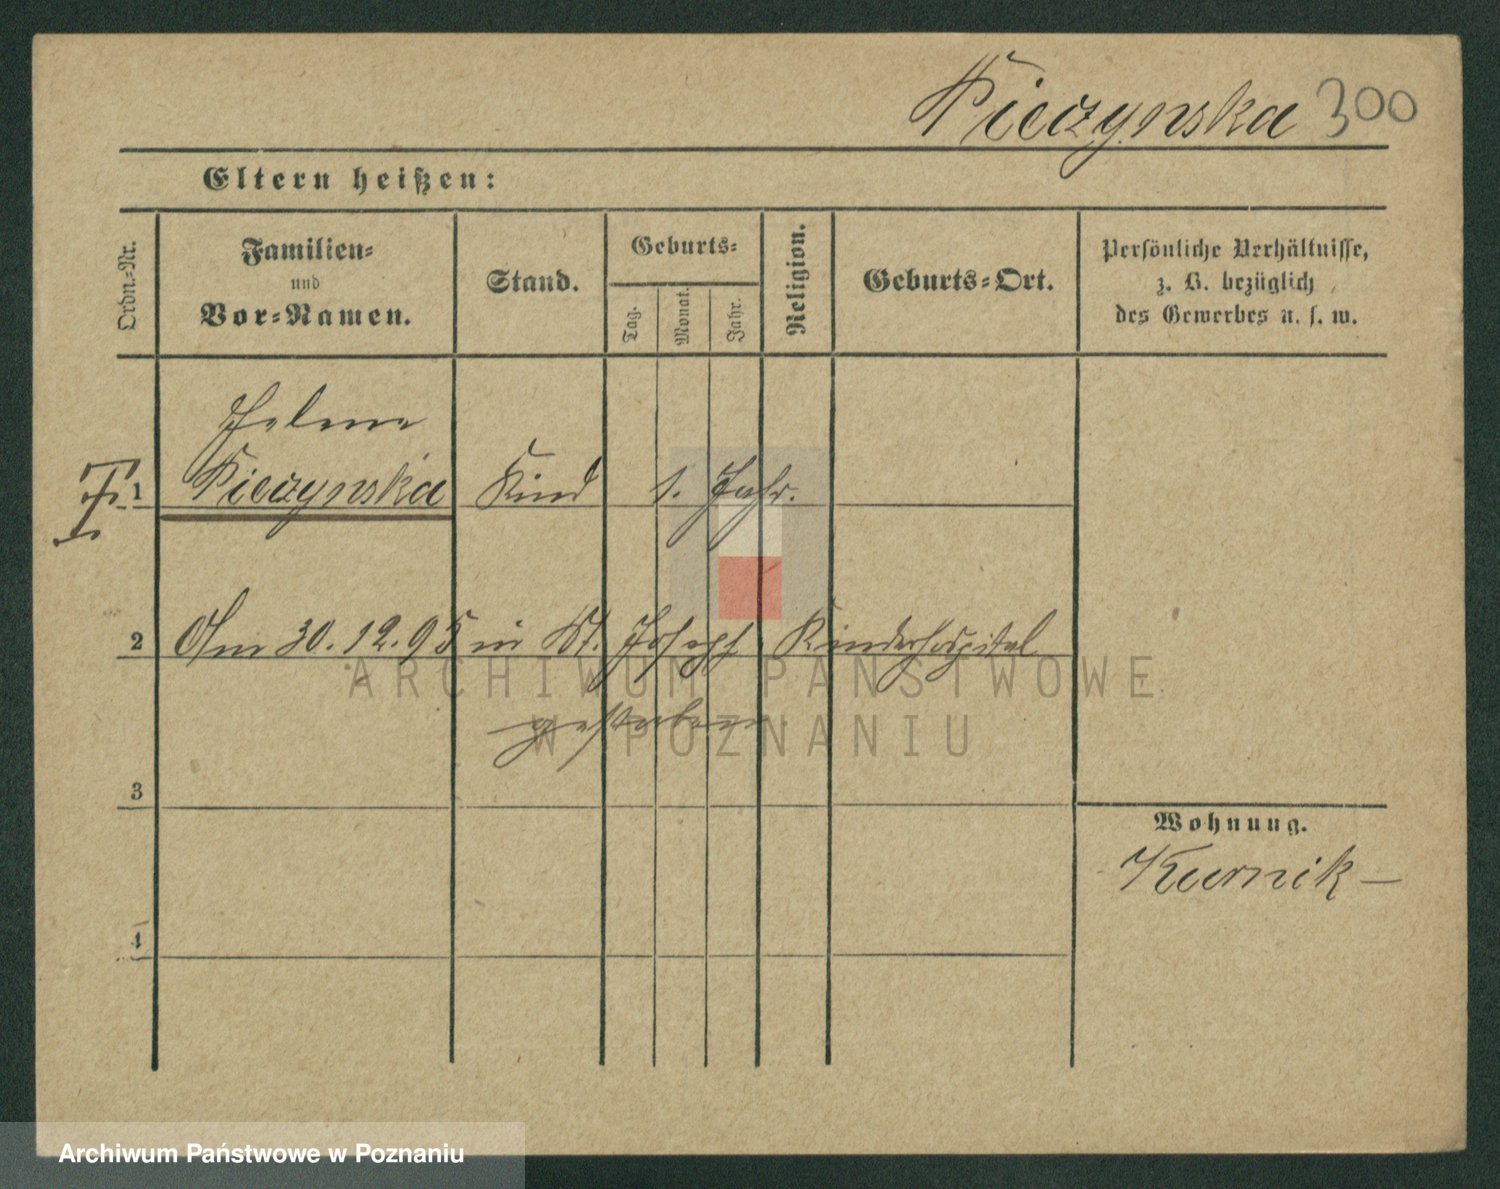 Pieczynska 300
Eltern heißen:
Ordn.-Nr.
Familien-
und
Vor-Namen.
Stand.
Geburts-
Tag.
Monat.
Jahr.
Religion.
Geburts-Ort.
Persönliche Verhältnisse,
z. B. bezüglich
des Gewerbes u. s. w.
Helene
1 Pieczynska Kind 1. Jahr.
2 Am 30.12.95 in St. Joseph Kinderhospital
gestorben
3
Wohnung.
Kurnik –
4
ARCHIWUM PAŃSTWOWE
W POZNANIU
Archiwum Państwowe w Poznaniu